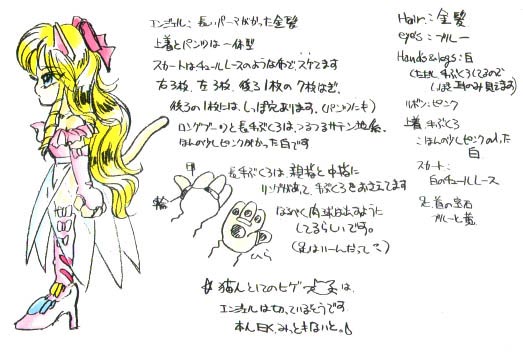 エンジェル：長いパーマがかった金髪
上着とパンツは一体型
スカートはチュールレースのような布でスケてます
右3枚、左3枚、後ろ1枚の7枚はぎ、
後ろの1枚には、しっぽ穴あります。(パンツにも)
ロングブーツと長手ぶくろは、つるつるサテン地系、
ほんの少しピンクがかった白です
甲
長手ぶくろは、親指と中指に
リングがあって、手ぶくろをおさえてます
輪
なるべく肉球は出るように
してるらしいです。
(足はいーんだって?)
ひら
☆猫人としてのヒゲ は、
エンジェルは切っているそうです
本人曰く、みっともないと。
Hair：金髪
eye's：ブルー
Hands&legs：白
(ただし手ぶくろしてるので
しっぽと耳のみ見えます)
リボン：ピンク
上着 手ぶくろ
こほんの少しピンクのかった
白
スカート：
白のチュールレース
足、首の宝石
ブルーと黄